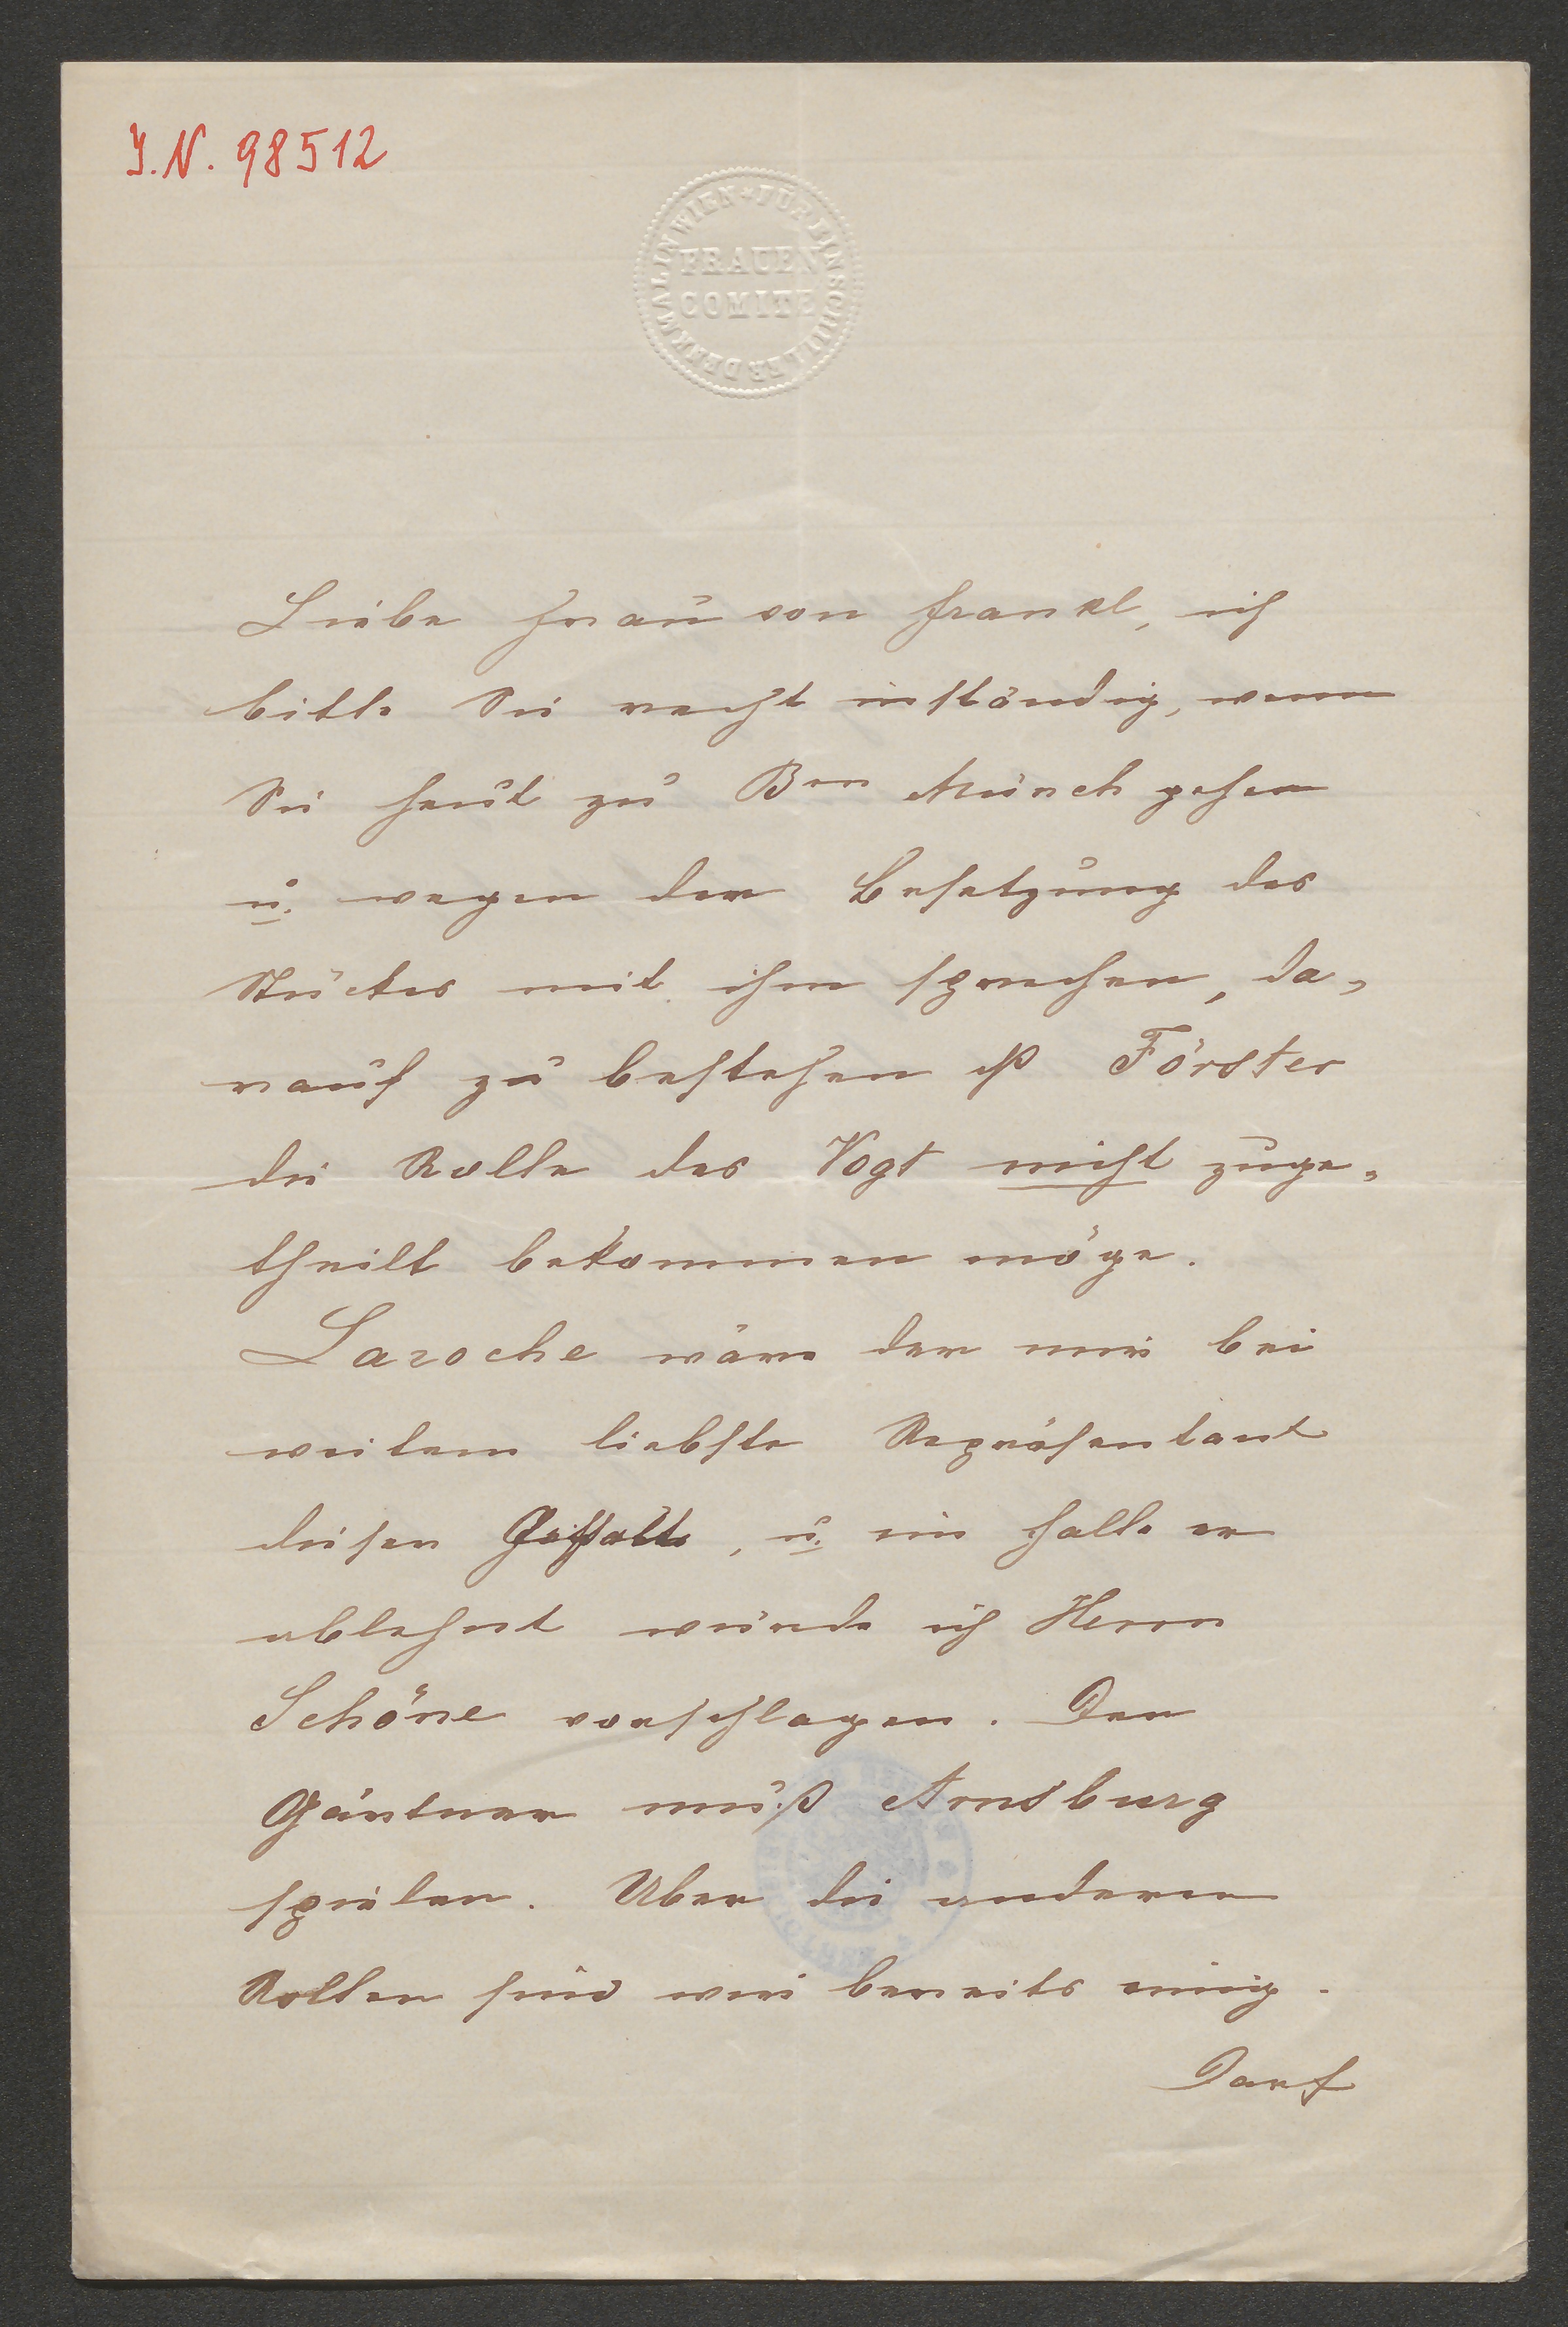 I.N. 98512
FÜR EIN SCHILLER DENKMAL IN WIEN *
FRAUEN
COMITE
Liebe Frau von Frankl, ich
bitte Sie recht inständig, wenn
Sie heut zu Bon Münch gehen
u. wegen der Besetzung des
Stückes mit ihm sprechen, da„
rauf zu bestehen dß Förster
die Rolle des Vogt nicht zuge„
theilt bekommen möge.
Laroche wäre der mir bei
weitem liebste Repräsentant
dieser Gestalt, u. im Falle er
ablehnt würde ich Herrn
Schöne vorschlagen. Den
Gärtner muß Arnsburg
spielen. Über die anderen
Rollen sind wir bereits einig.
Darf